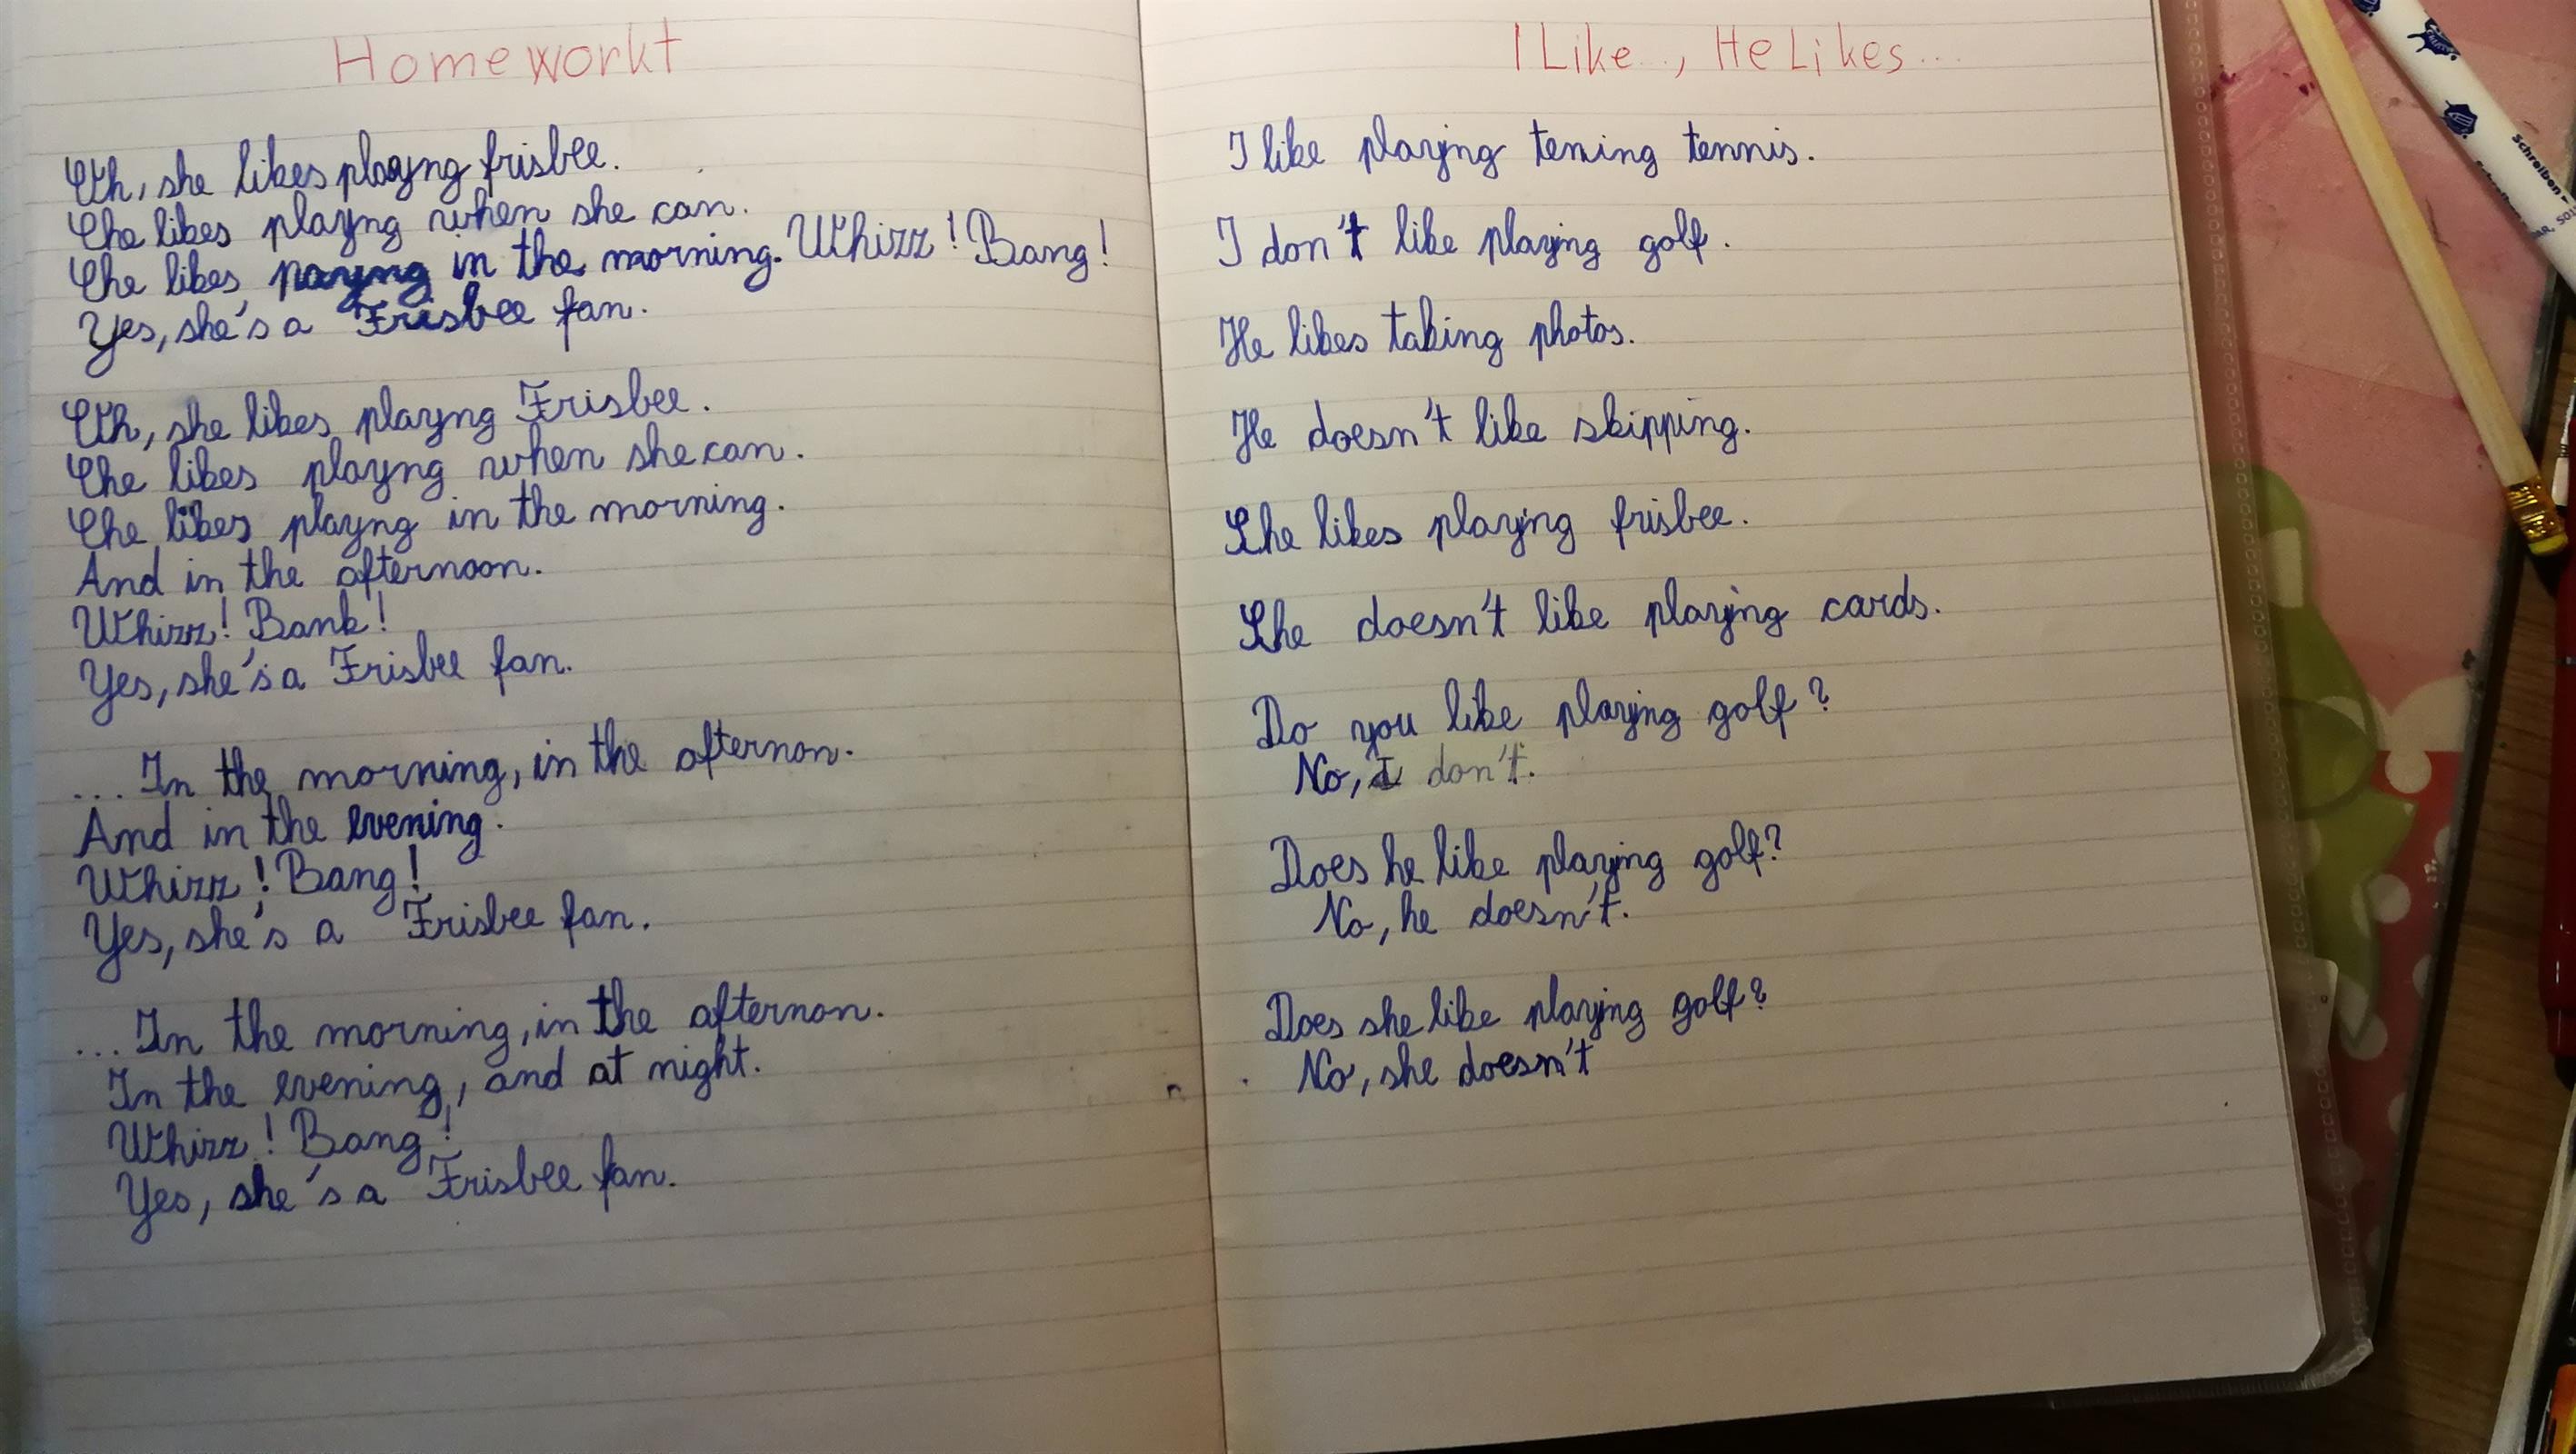 Homeworkt
Oh, she likes playyng frisbee.
She likes playyng when she can.
She likes in the morning. Whizz! Bang!
Yes, she's a Frisbee fan.
Oh, she likes playng Frisbee.
She likes playng when she can.
She likes playng in the morning.
And in the afternoon.
Whizz! Bank!
Yes, she's a Frisbee fan.
... In the morning, in the afternon.
And in the evening.
Whizz! Bang!
Yes, she's a Frisbee fan.
... In the morning, in the afternon.
In the evening, and at night.
Whizz! Bang!
Yes, she's a Frisbee fan.
I Like.., He Likes...
I like playing tening tennis.
I don't like playing golf.
He likes taking photos.
He doesn't like skipping.
She likes playing frisbee.
She doesn't like playing cards.
Do you like playing golf?
No, I don't.
Does he like playing golf?
No, he doesn't.
Does she like playing golf?
No, she doesn't
Schreiben